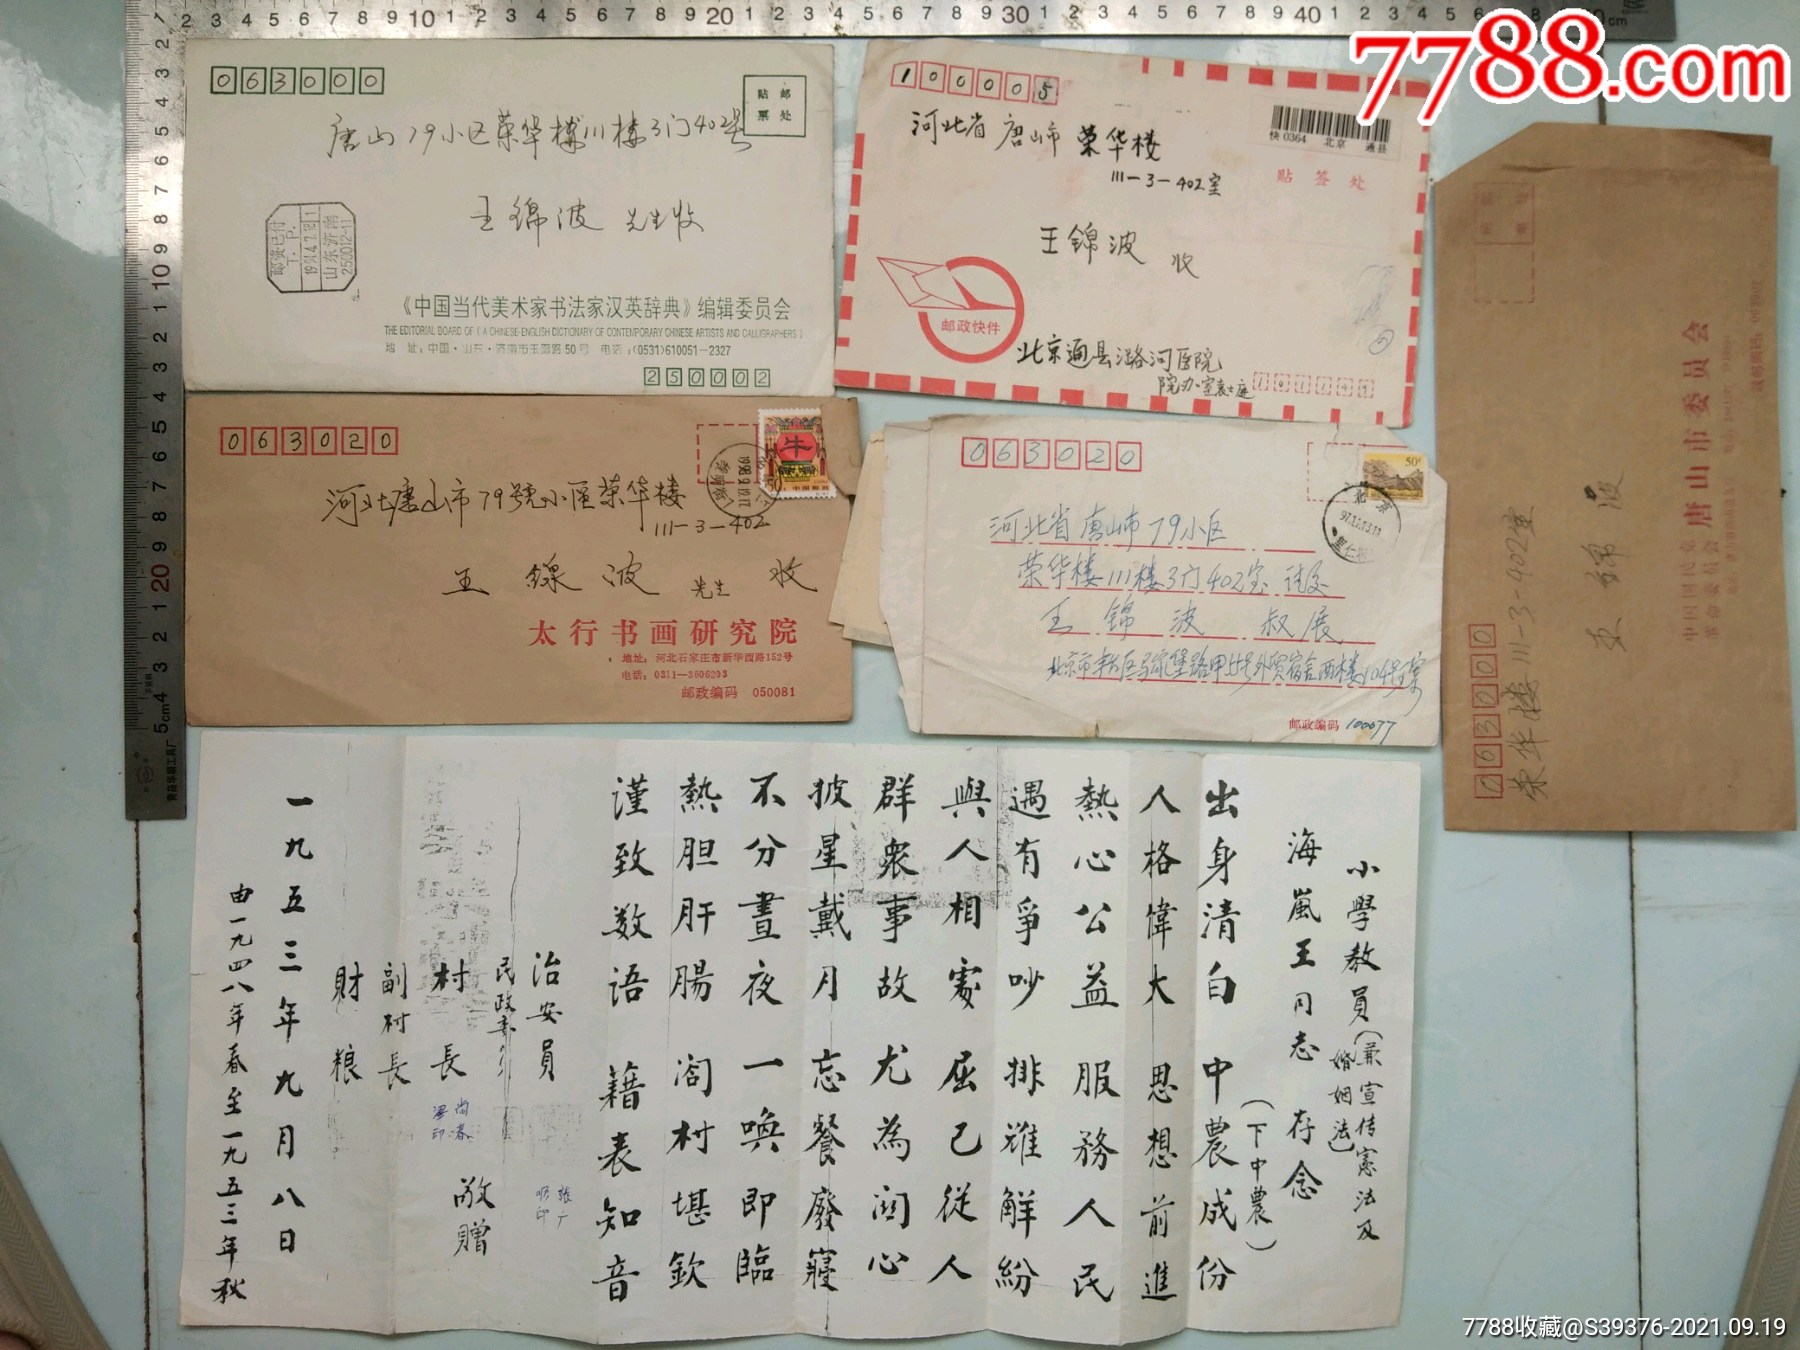 7788.com
063000
贴邮
票处
唐山79小区荣华楼111楼3门402号
王锦波 先生收
邮资已付
T. P.
山东济南
250012-11
《中国当代美术家书法家汉英辞典》编辑委员会
THE EDITORIAL BOARD OF 《A CHINESE-ENGLISH DICTIONARY OF CONTEMPORARY CHINESE ARTISTS AND CALLIGRAPHERS》
地 址:中国·山东·济南市玉函路50号 电话:(0531)610051-2327
250002
100005
河北省 唐山市 荣华楼
111-3-402室
快0364 北京 通县
贴签处
王锦波 收
邮政快件
北京通县潞河医院
院办室袁士庭
101149
063020
河北唐山市79號小區荣华楼
111-3-402
王 錦 波 先生 收
牛
50分 中国邮政
太行书画研究院
地址:河北石家庄市新华西路152号
电话:0311-3606203
邮政编码 050081
063020
50分
北京
河北省唐山市79小区
荣华楼111楼3门402室 讨交
王锦波 叔展
邮政编码 100077
063000
荣华楼111-3-402室
王锦波
中国国民党
革命委员会
唐山市委员会
小學教員(兼宣传憲法及
婚姻法)
海嵐王同志 存念
出身清白 中農成份
(下中農)
人格偉大 思想前進
熱心公益 服務人民
遇有爭吵 排难解紛
與人相處 屈己從人
群衆事故 尤為関心
披星戴月 忘餐廢寢
不分晝夜 一唤即臨
熱胆肝腸 阎村堪欽
谨致数语 藉表知音
治安員
民政委员
村長
副村長
財粮
敬贈
一九五三年九月八日
由一九四八年春至一九五三年秋
7788收藏@S39376-2021.09.19